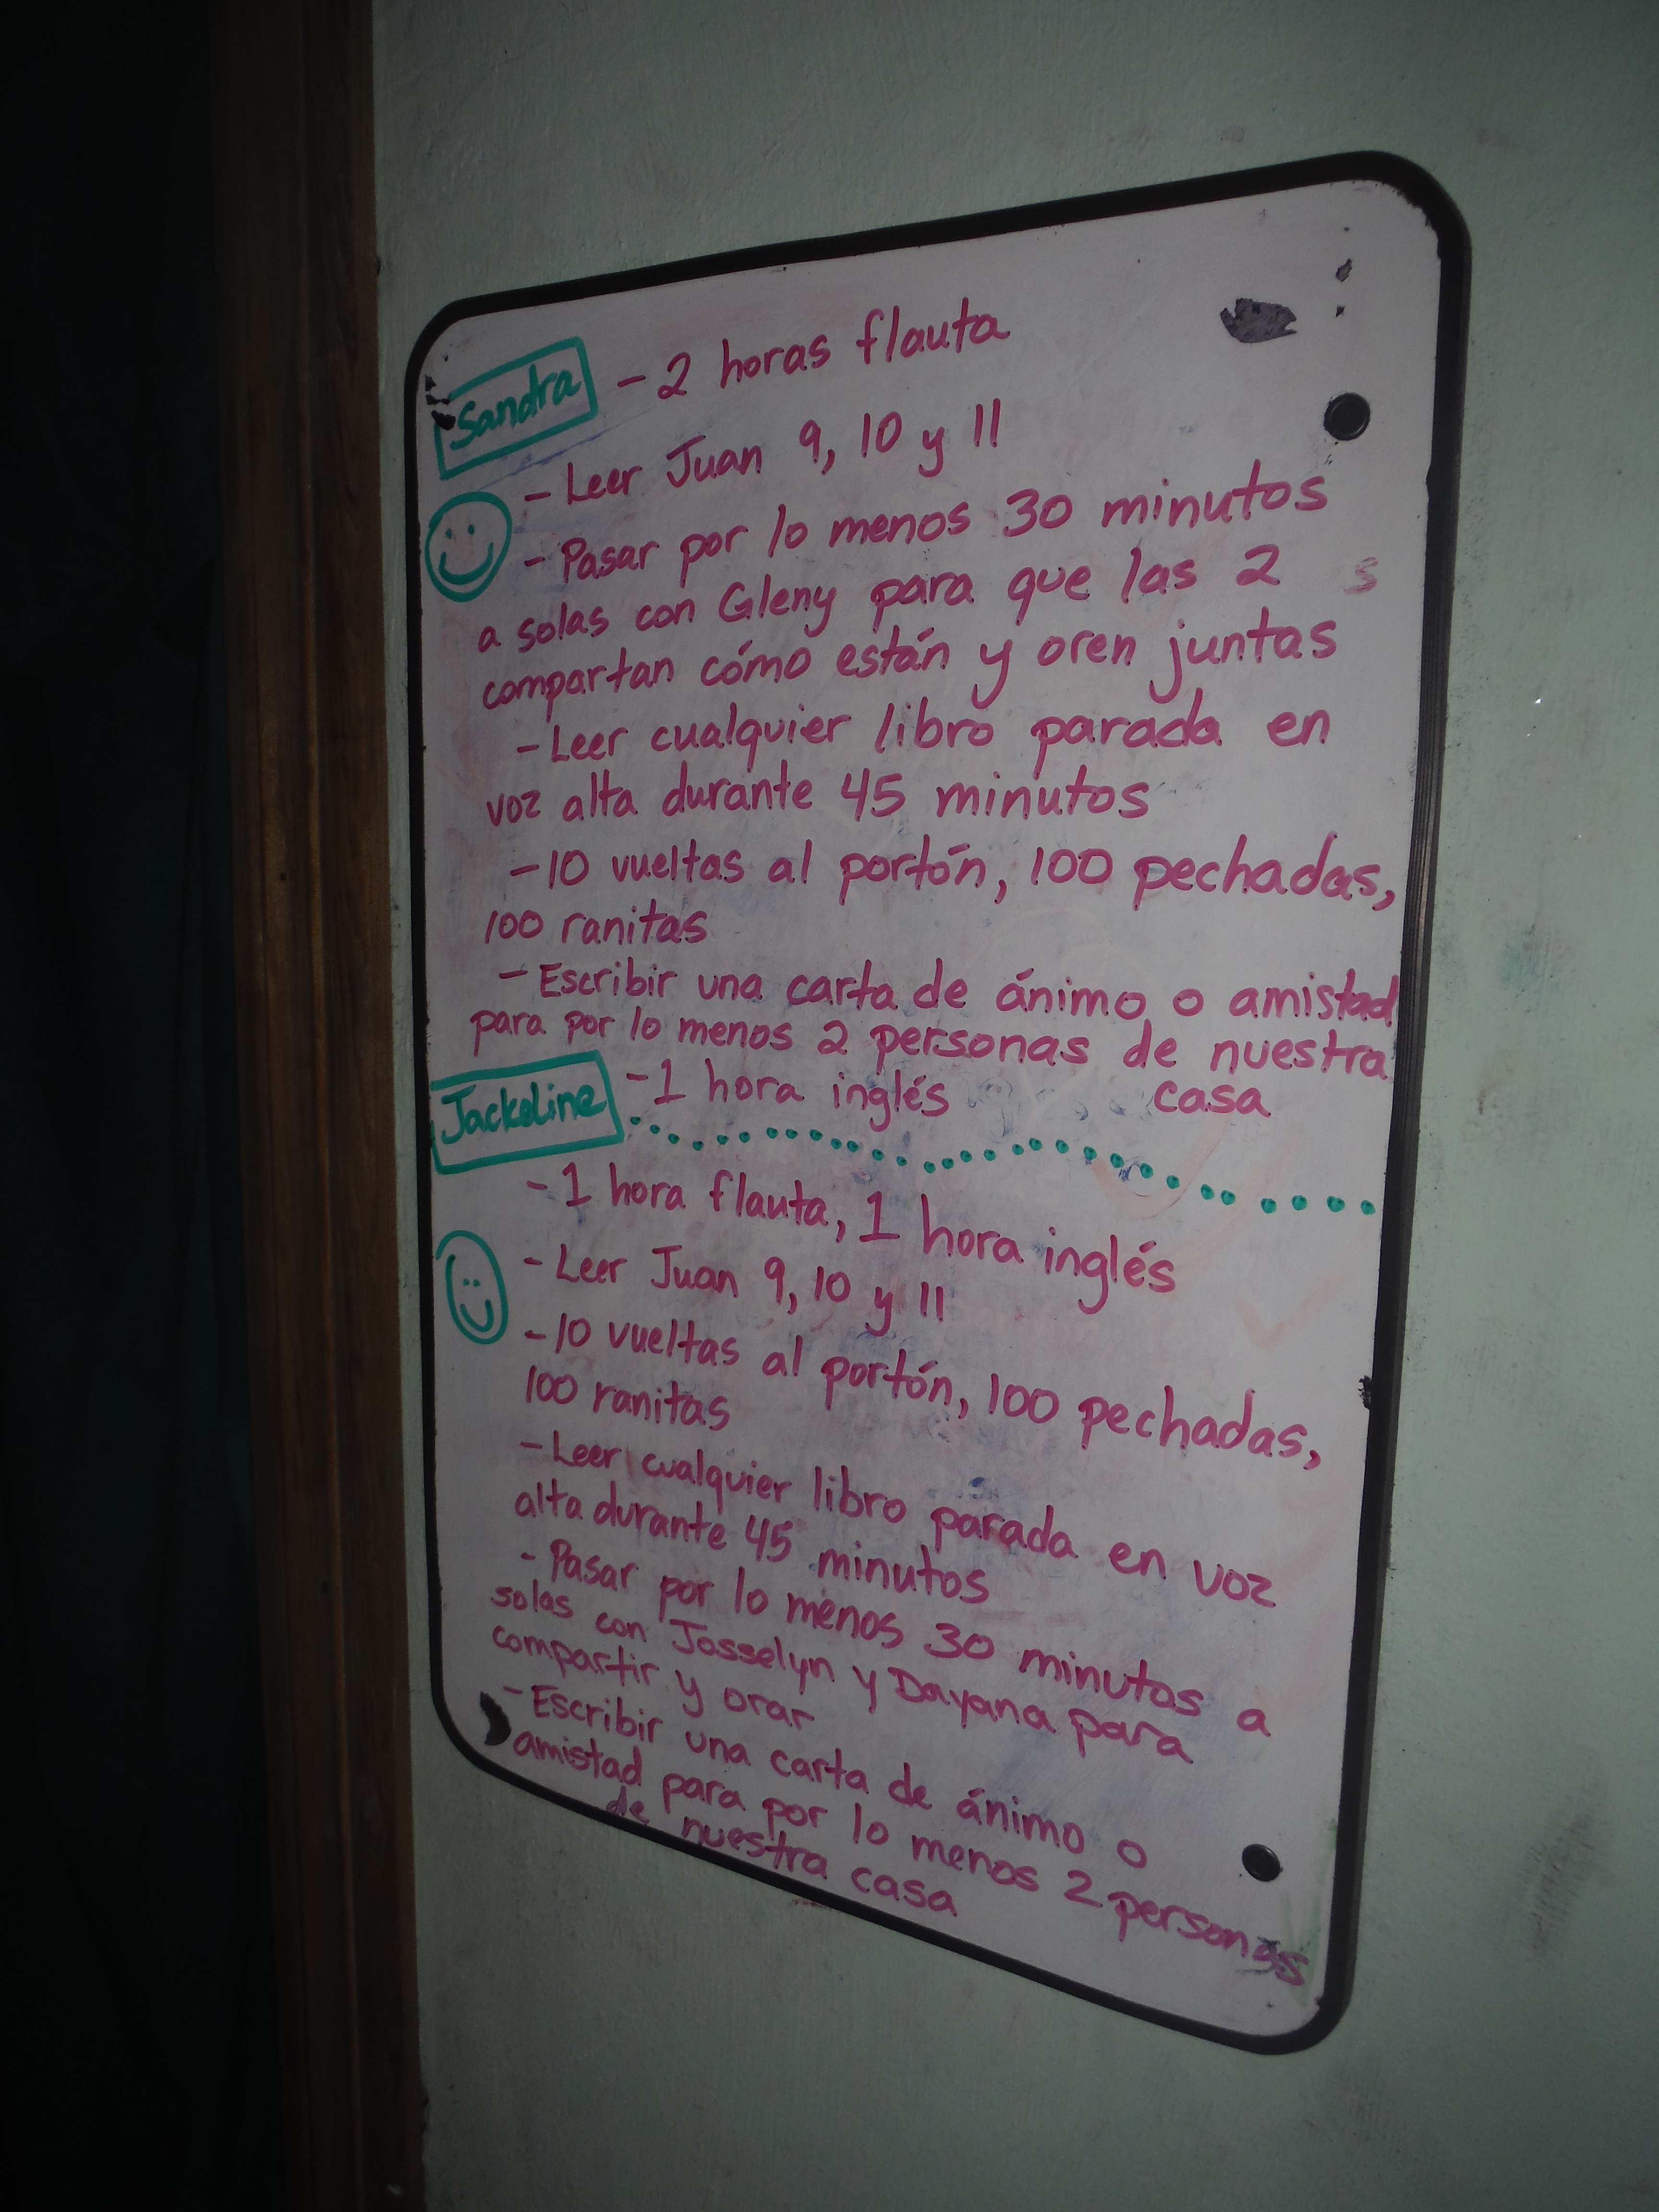 Sandra - 2 horas flauta
- Leer Juan 9, 10 y 11
- Pasar por lo menos 30 minutos
a solas con Gleny para que las 2 s
compartan cómo están y oren juntas
- Leer cualquier libro parada en
voz alta durante 45 minutos
- 10 vueltas al portón, 100 pechadas,
100 ranitas
- Escribir una carta de ánimo o amistad
para por lo menos 2 personas de nuestra
casa
Jackeline - 1 hora inglés
- 1 hora flauta, 1 hora inglés
- Leer Juan 9, 10 y 11
- 10 vueltas al portón, 100 pechadas,
100 ranitas
- Leer cualquier libro parada en voz
alta durante 45 minutos
- Pasar por lo menos 30 minutos a
solas con Josselyn y Dayana para
compartir y orar
- Escribir una carta de ánimo o
amistad para por lo menos 2 personas
de nuestra casa